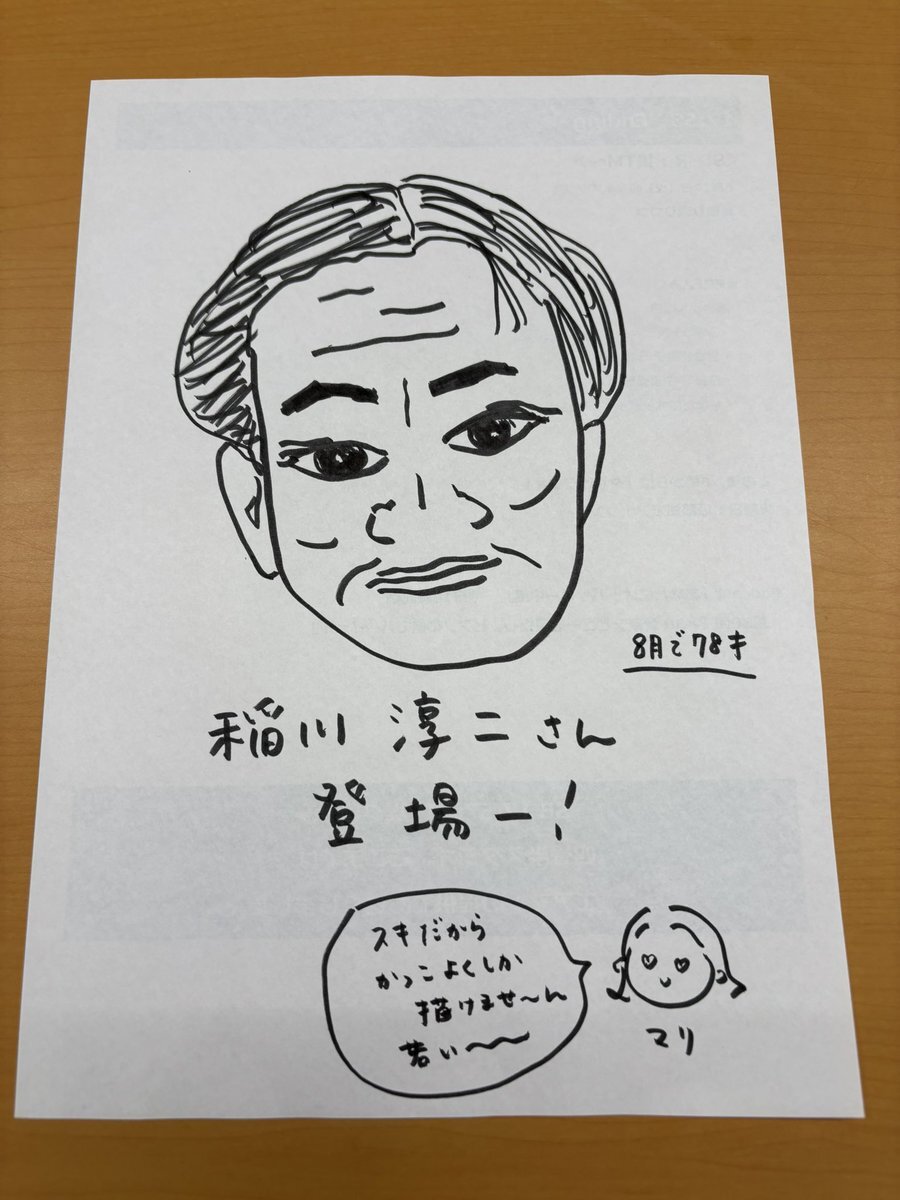 8月で78才
稲川 淳二さん
登場ー!
スキだから
かっこよくしか
描けませ〜ん
若い〜〜
マリ